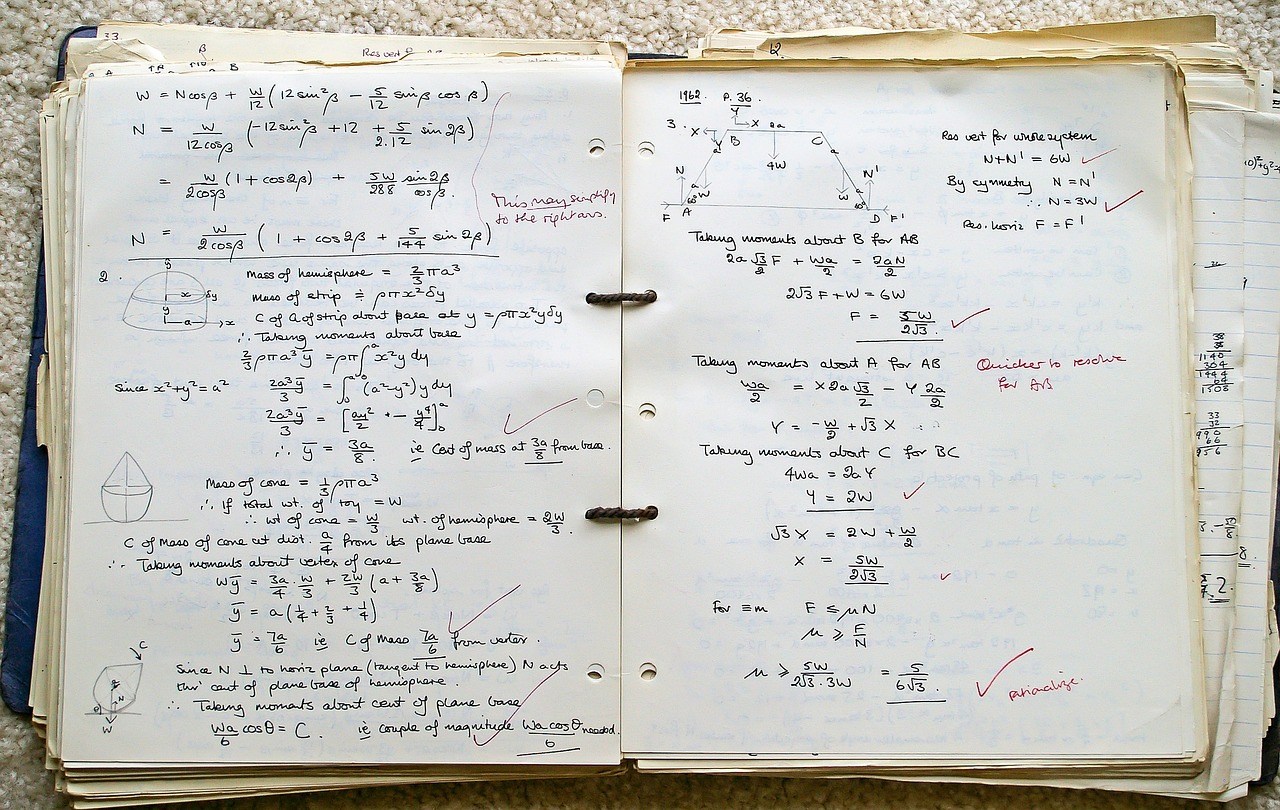 33.
β
Res vert
B
W = N cosβ + W/12 (12 sin²β − 5/12 sinβ cosβ)
N = W/12cosβ (−12 sin²β + 12 + 5/2.12 sin 2β)
= W/2cosβ (1 + cos2β) + 5W/288 sin2β/cosβ.
This may simplify
to the right ans.
N = W/2cosβ (1 + cos2β + 5/144 sin2β)
2.
y
x δy
y
a x
Mass of hemisphere = 2/3 πa³
Mass of strip ≑ ρπx²δy
C of G of strip about base at y = ρπx²yδy
∴ Taking moments about base
2/3 ρπa³ȳ = ρπ∫₀ᵃ x²y dy
Since x²+y² = a² 2a³ȳ/3 = ∫₀ᵃ (a²−y²) y dy
2a³ȳ/3 = [ay²/2 − y⁴/4]₀ᵃ
∴ ȳ = 3a/8 ie Cent of mass at 3a/8 from base.
Mass of cone = 1/3 ρπa³
∴ If total wt. of toy = W
∴ wt of cone = W/3 wt. of hemisphere = 2W/3.
C of Mass of cone at dist. a/4 from its plane base
∴ Taking moments about vertex of cone
Wȳ = 3a/4 . W/3 + 2W/3 (a + 3a/8)
ȳ = a(1/4 + 2/3 + 1/4)
ȳ = 7a/6 ie C of Mass 7a/6 from vertex.
C
θ N
W
Since N ⊥ to horiz plane (tangent to hemisphere) N acts
thro' cent of plane base of hemisphere.
∴ Taking moments about cent of plane base
Wa/6 cosθ = C. ie couple of magnitude Wa cosθ/6 needed.
12.
1962. P. 36.
3.
Y
X X 2a
Y B C
a 4W a
N a a N'
W W
60° 60°
F A D F'
Res vert for whole system
N+N' = 6W
By symmetry N = N'
∴ N = 3W
Res. horiz F = F'
Taking moments about B for AB
2a √3/2 F + Wa/2 = 2aN/2
2√3 F + W = 6W
F = 5W/2√3.
Taking moments about A for AB
Quicker to resolve
for AB
Wa/2 = X 2a √3/2 − Y 2a/2
Y = −W/2 + √3 X
Taking moments about C for BC
4Wa = 2aY
Y = 2W
√3 X = 2W + W/2
X = 5W/2√3
For ≡m F ≤ μN
μ ≥ F/N
μ ≥ 5W/2√3.3W = 5/6√3.
rationalize.
38
38
1140
304
1444
64
1508
33
32
990
66
956